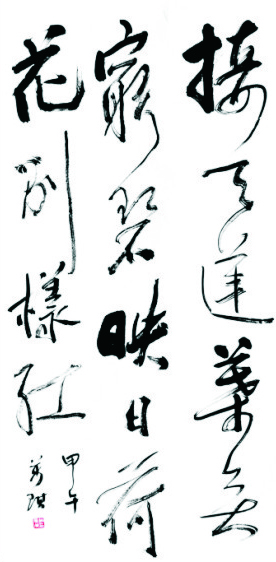 接天蓮葉无
窮碧映日荷
花別樣紅
甲午